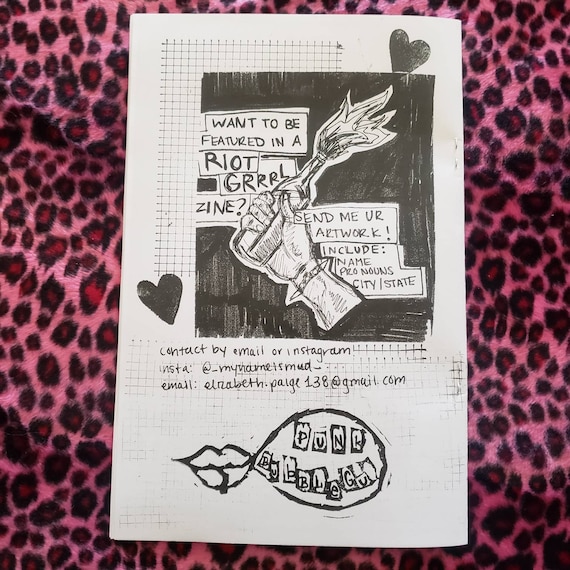 WANT TO BE
FEATURED IN A
RIOT
GRRRL
ZINE?
SEND ME UR
ARTWORK!
INCLUDE:
NAME
PRONOUNS
CITY/STATE
contact by email or instagram
insta: @_mynameismud_
email: elizabeth.paige138@gmail.com
PUNK
BUBBLEGUM